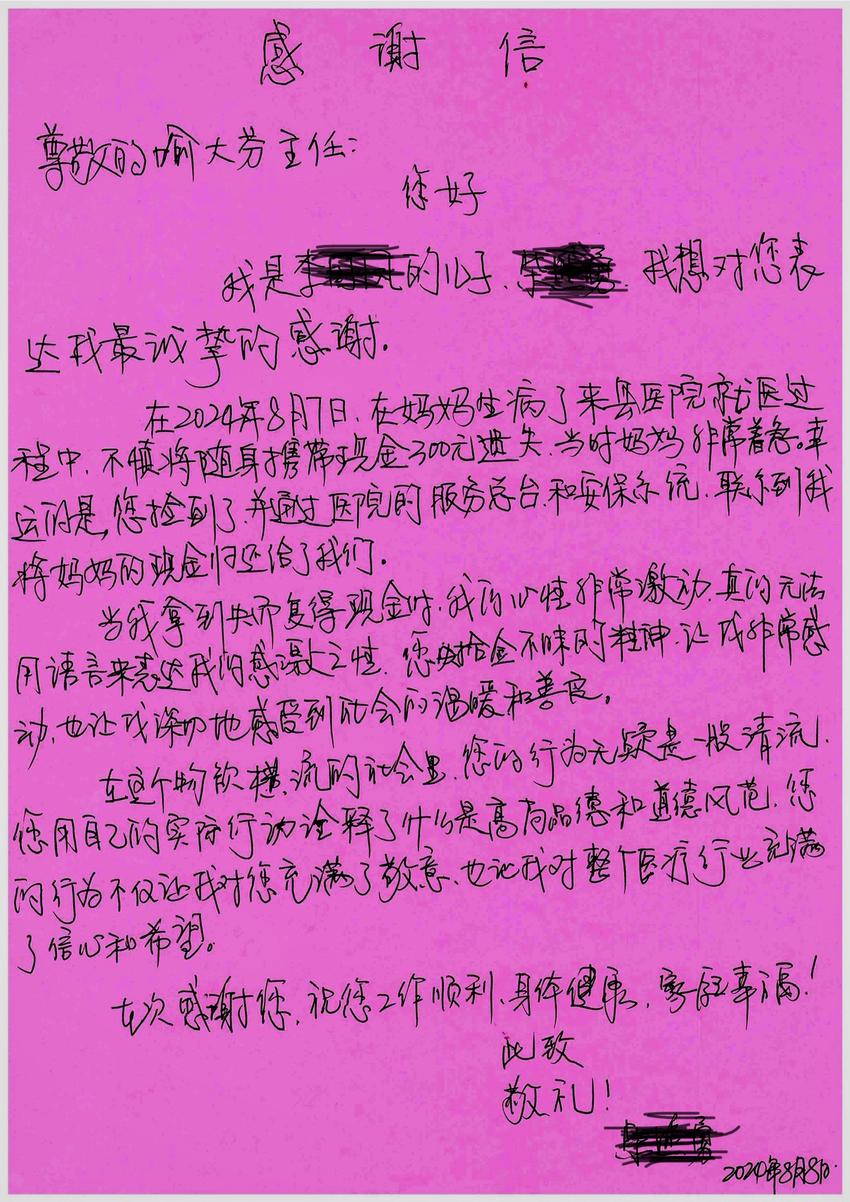 感谢信
尊敬的喻大芬主任：
您好
我是李的儿子、我想对您表
达我最诚挚的感谢。
在2024年8月7日，在妈妈生病了来县医院就医过
程中，不慎将随身携带现金300元遗失，当时妈妈非常着急。幸
运的是，您捡到了，并通过医院的服务总台和安保系统，联系到我
将妈妈的现金归还给了我们。
当我拿到失而复得现金时，我的心性非常激动，真的无法
用语言来表达我的感激之情，您拾金不昧的精神，让我非常感
动，也让我深切地感受到社会的温暖和善良。
在这个物欲横流的社会里，您的行为无疑是一股清流，
您用自己的实际行动诠释了什么是高尚品德和道德风范，您
的行为不仅让我对您充满了敬意，也让我对整个医疗行业充满
了信心和希望。
在次感谢您，祝您工作顺利、身体健康，家庭幸福！
此致
敬礼！
2024年8月8日.